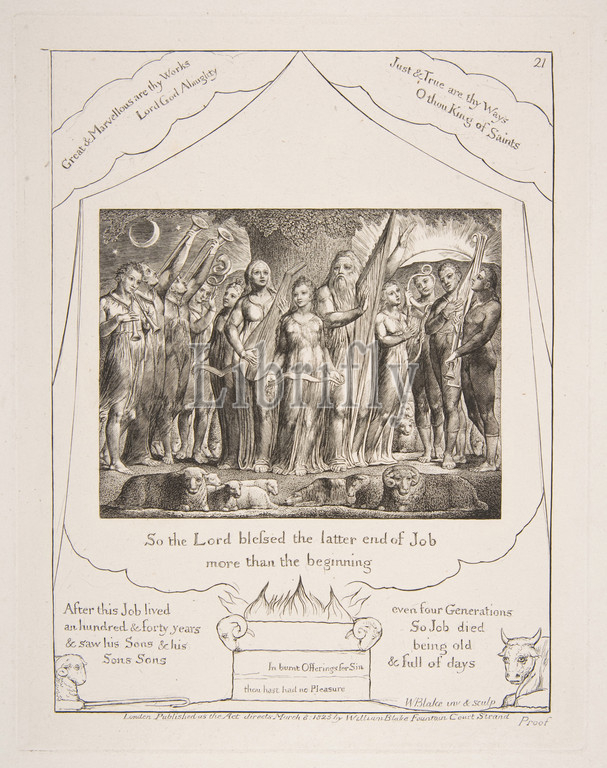 21
Great & Marvellous are thy Works
Lord God Almighty
Just & True are thy Ways
O thou King of Saints
Librifly
So the Lord blefsed the latter end of Job
more than the beginning
After this Job lived
an hundred & forty years
& saw his Sons & his
Sons Sons
even four Generations
So Job died
being old
& full of days
In burnt Offerings for Sin
thou hast had no Pleasure
WBlake inv & sculp
London Published as the Act directs March 8: 1825 by William Blake Fountain Court Strand
Proof